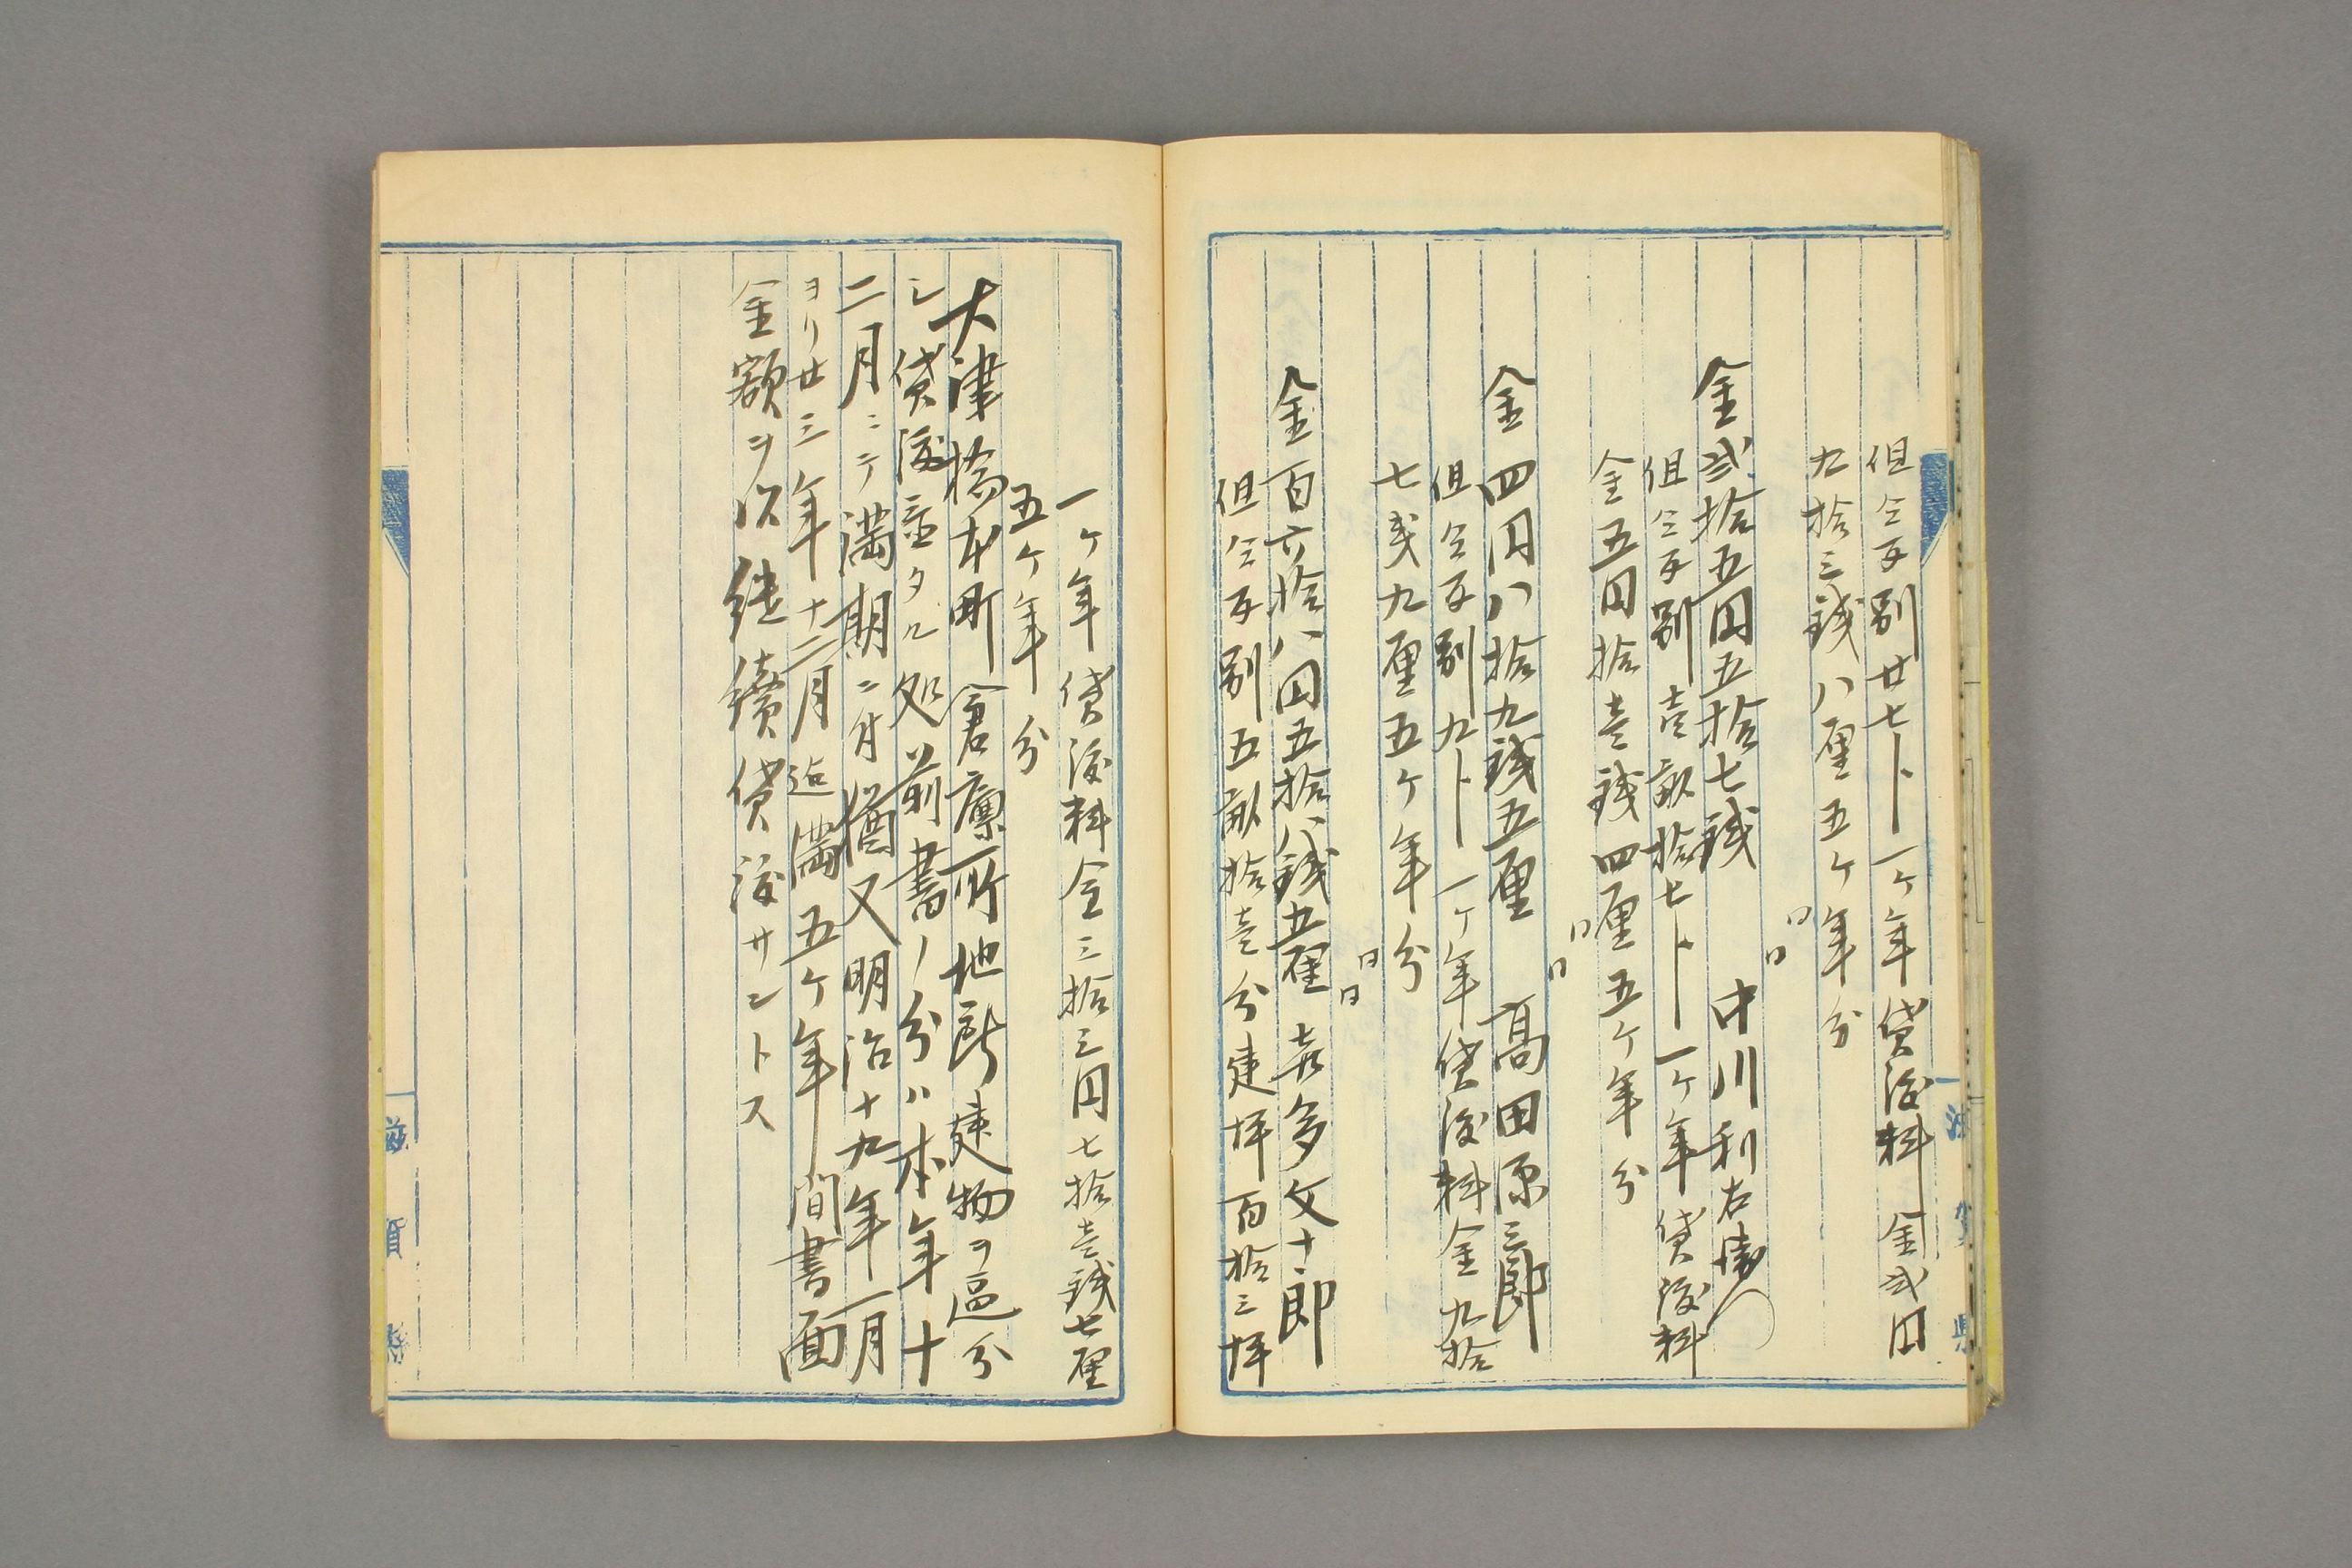 但シ反別廿七ト一ケ年貸渡料金弐円
九拾三銭八厘五ケ年分
〃〃
金弐拾五円五拾七銭 中川利右衛門
但シ反別壱畝拾七ト一ケ年貸渡料
金五円拾壱銭四厘五ケ年分
〃〃
金四円八拾九銭五厘 髙田源三郎
但シ反別九ト一ケ年貸渡料金九拾
七戋九厘五ケ年分
〃〃
金百六拾八円五拾八銭五厘 喜多文十郎
但シ反別五畝拾壱分建坪百拾三坪
一ケ年貸渡料金三拾三円七拾壱銭七厘
五ケ年分
大津橋本町倉廩所地所建物ヲ區分
シ貸渡置タル処前書ノ分ハ本年十
二月ニテ満期ニ付猶又明治十九年一月
ヨリ廿三年十二月迠満五ケ年間書面
金額ヲ以継續貸渡サントス
滋賀縣